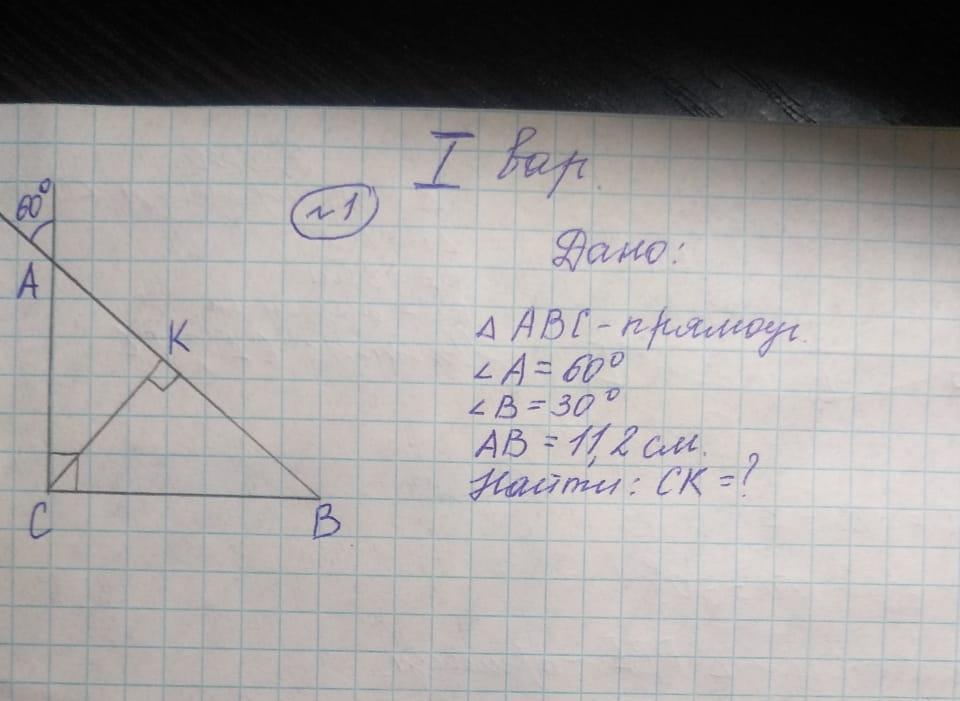 I вар.
№1
60°
A
K
C
B
Дано:
△ ABC - прямоуг.
∠A = 60°
∠B = 30°
AB = 11,2 см.
Найти: CK = ?